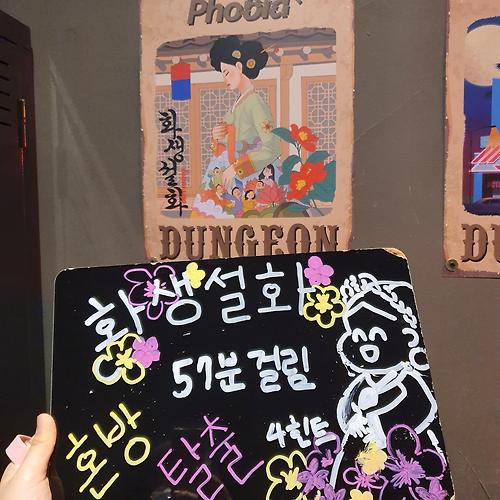 Phobia
화생설화
DUNGEON
DU
화생설화
57분 걸림
4힌트
혼방
탈출